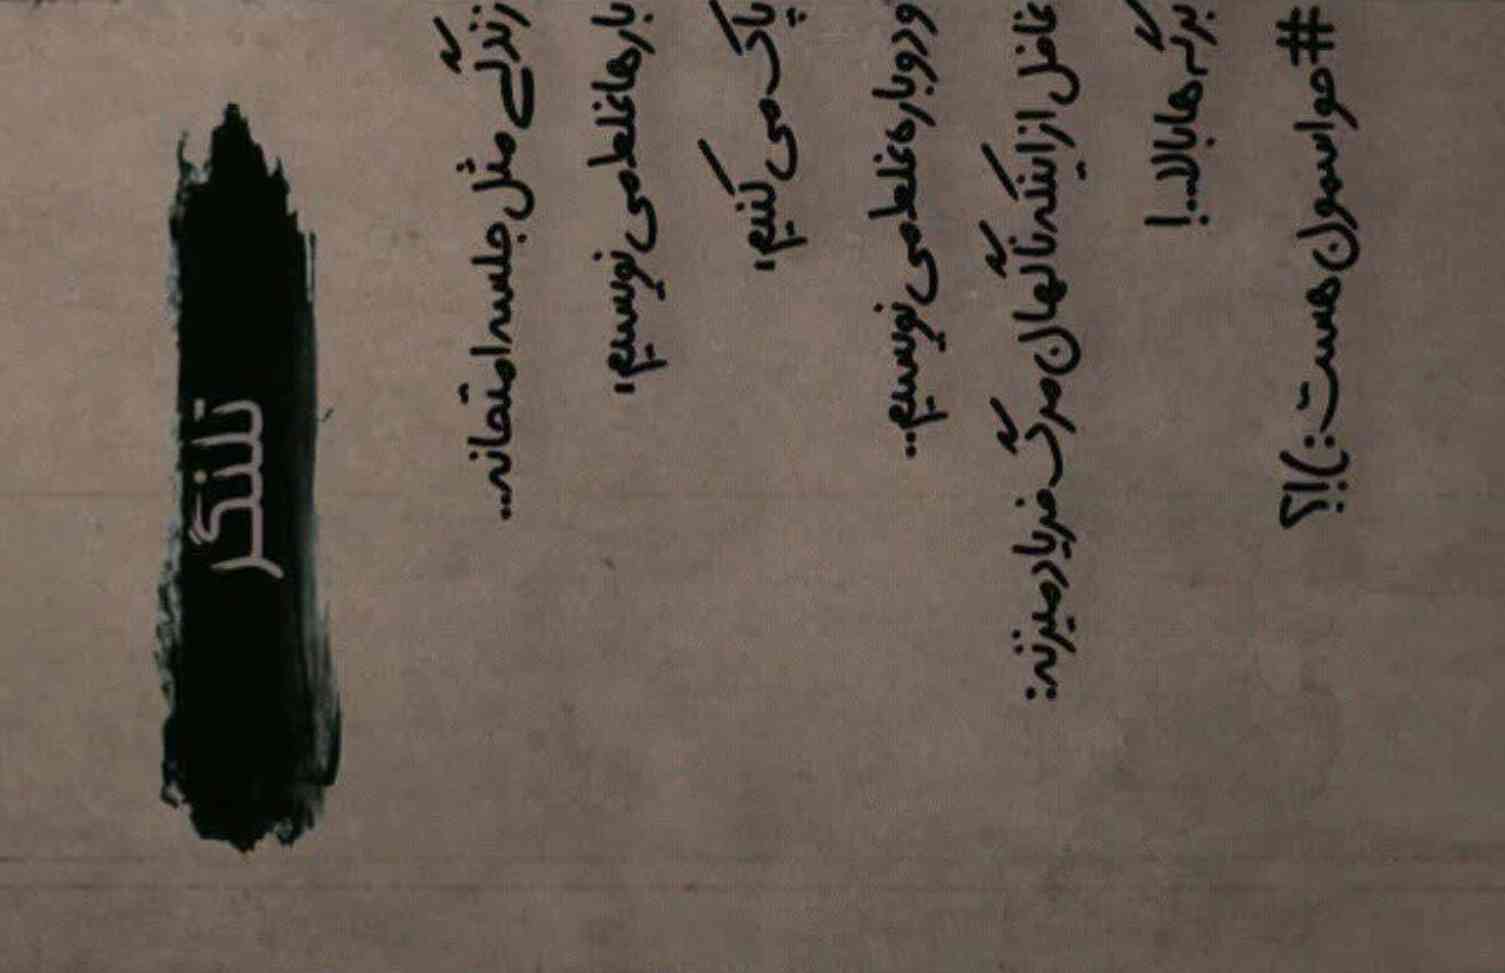 تلنگر
زندگی مثل جلسه امتحانه..
بارها غلط می نویسیم،
پاک می کنیم،
و دوباره غلط می نویسیم..
غافل از اینکه ناگهان مرگ فریاد میزنه:
برگه ها بالا..!
#حواسمون_هست:)!؟